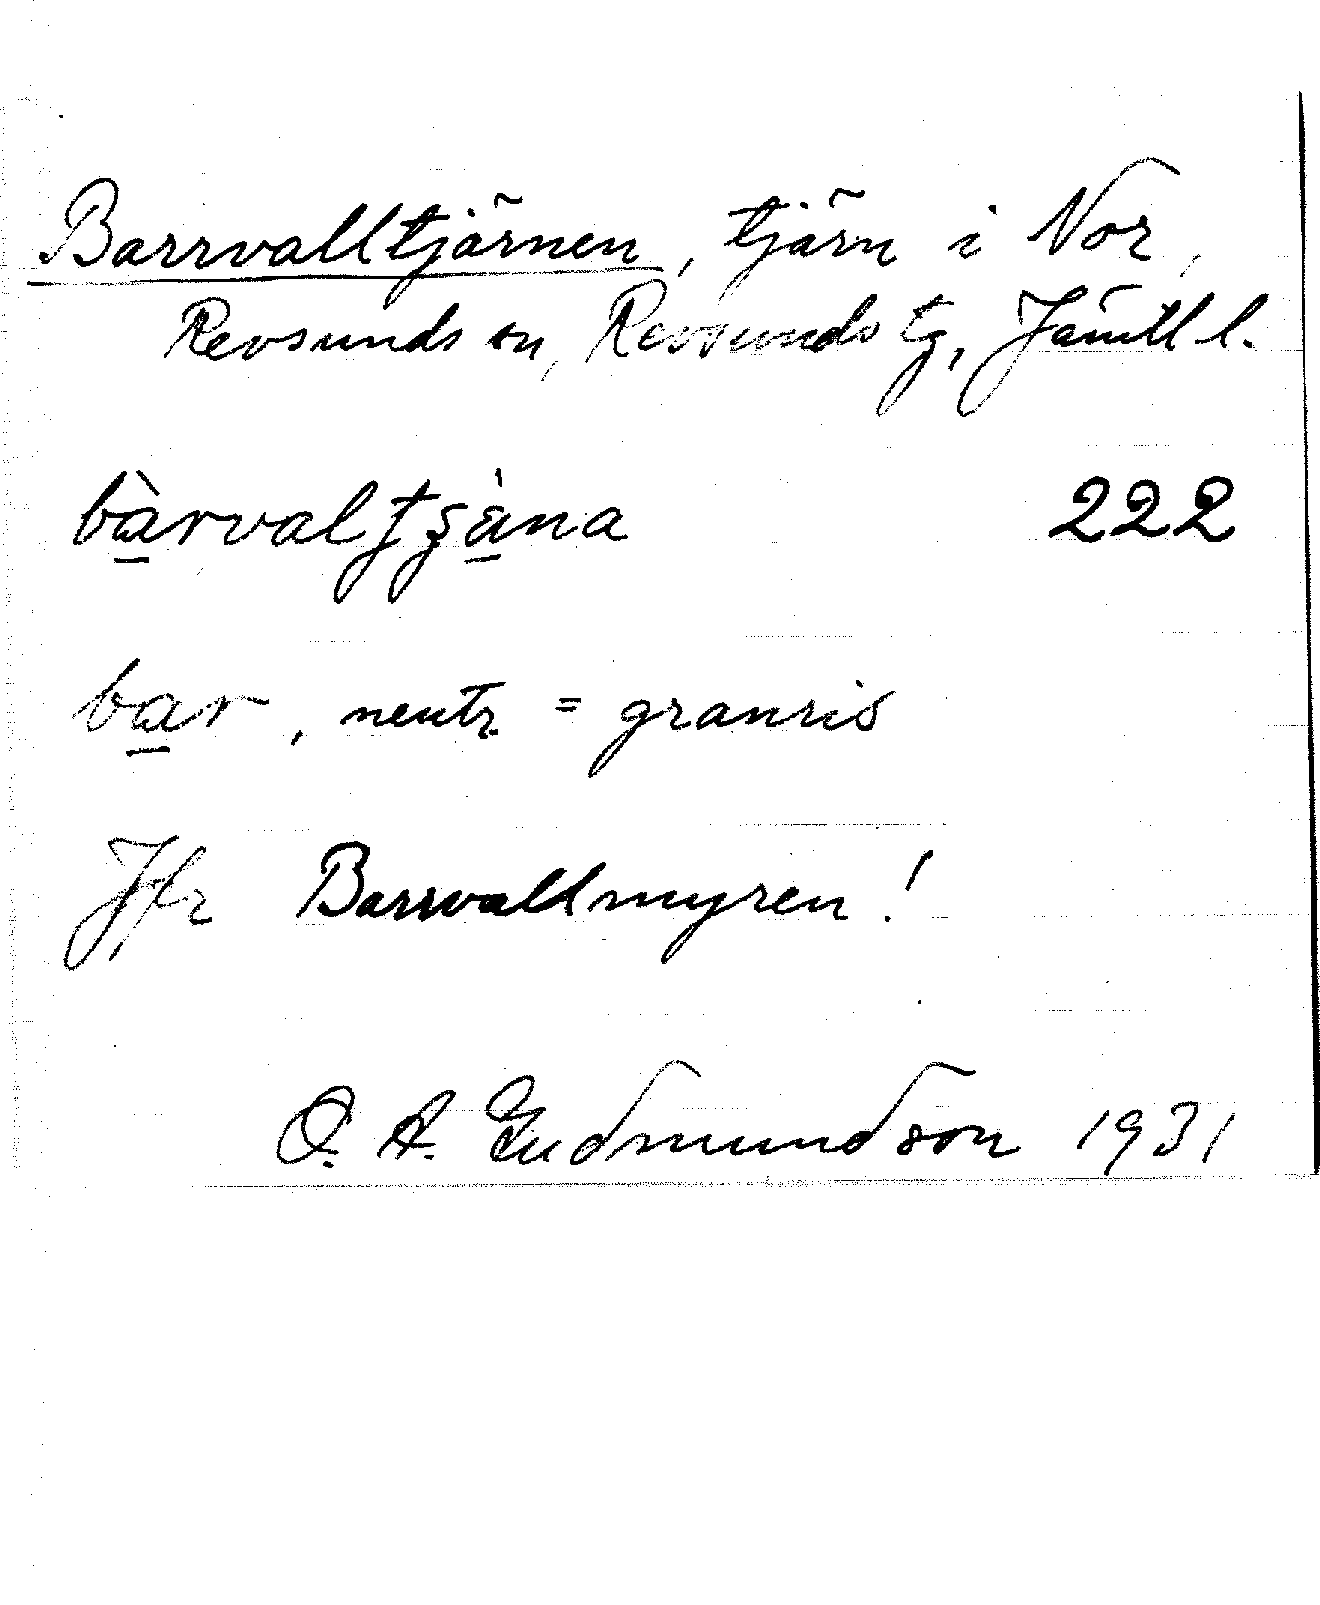 Barrvalltjärnen, tjärn i Nor,
Revsunds sn, Revsunds tg, Jämtl l.
222
bar, neutr. = granris
Jfr Barrvallmyren!
O. A. Gudmundson 1931